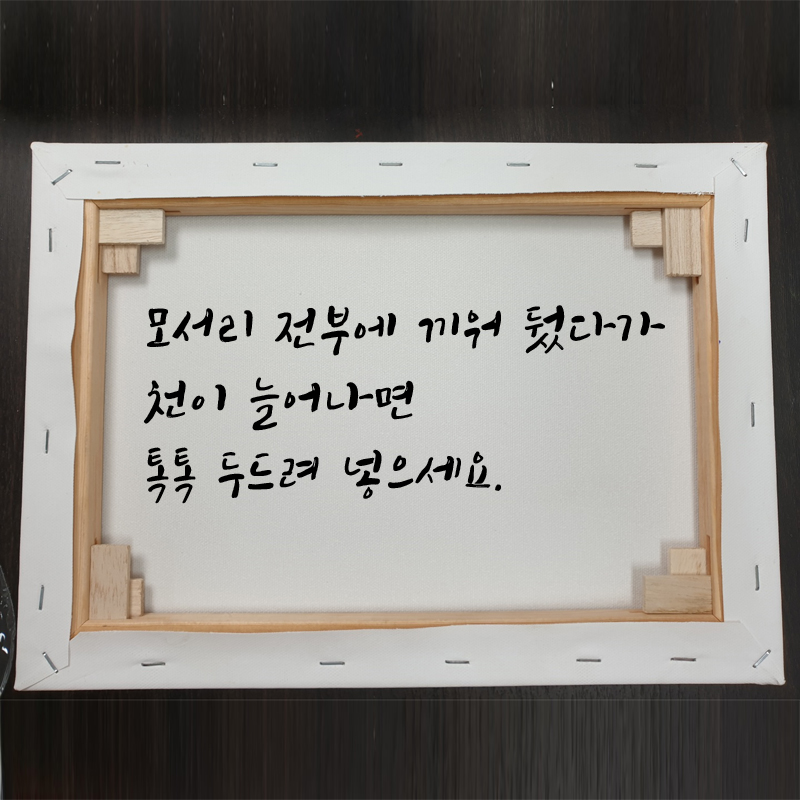 모서리 전부에 끼워 뒀다가
천이 늘어나면
톡톡 두드려 넣으세요.